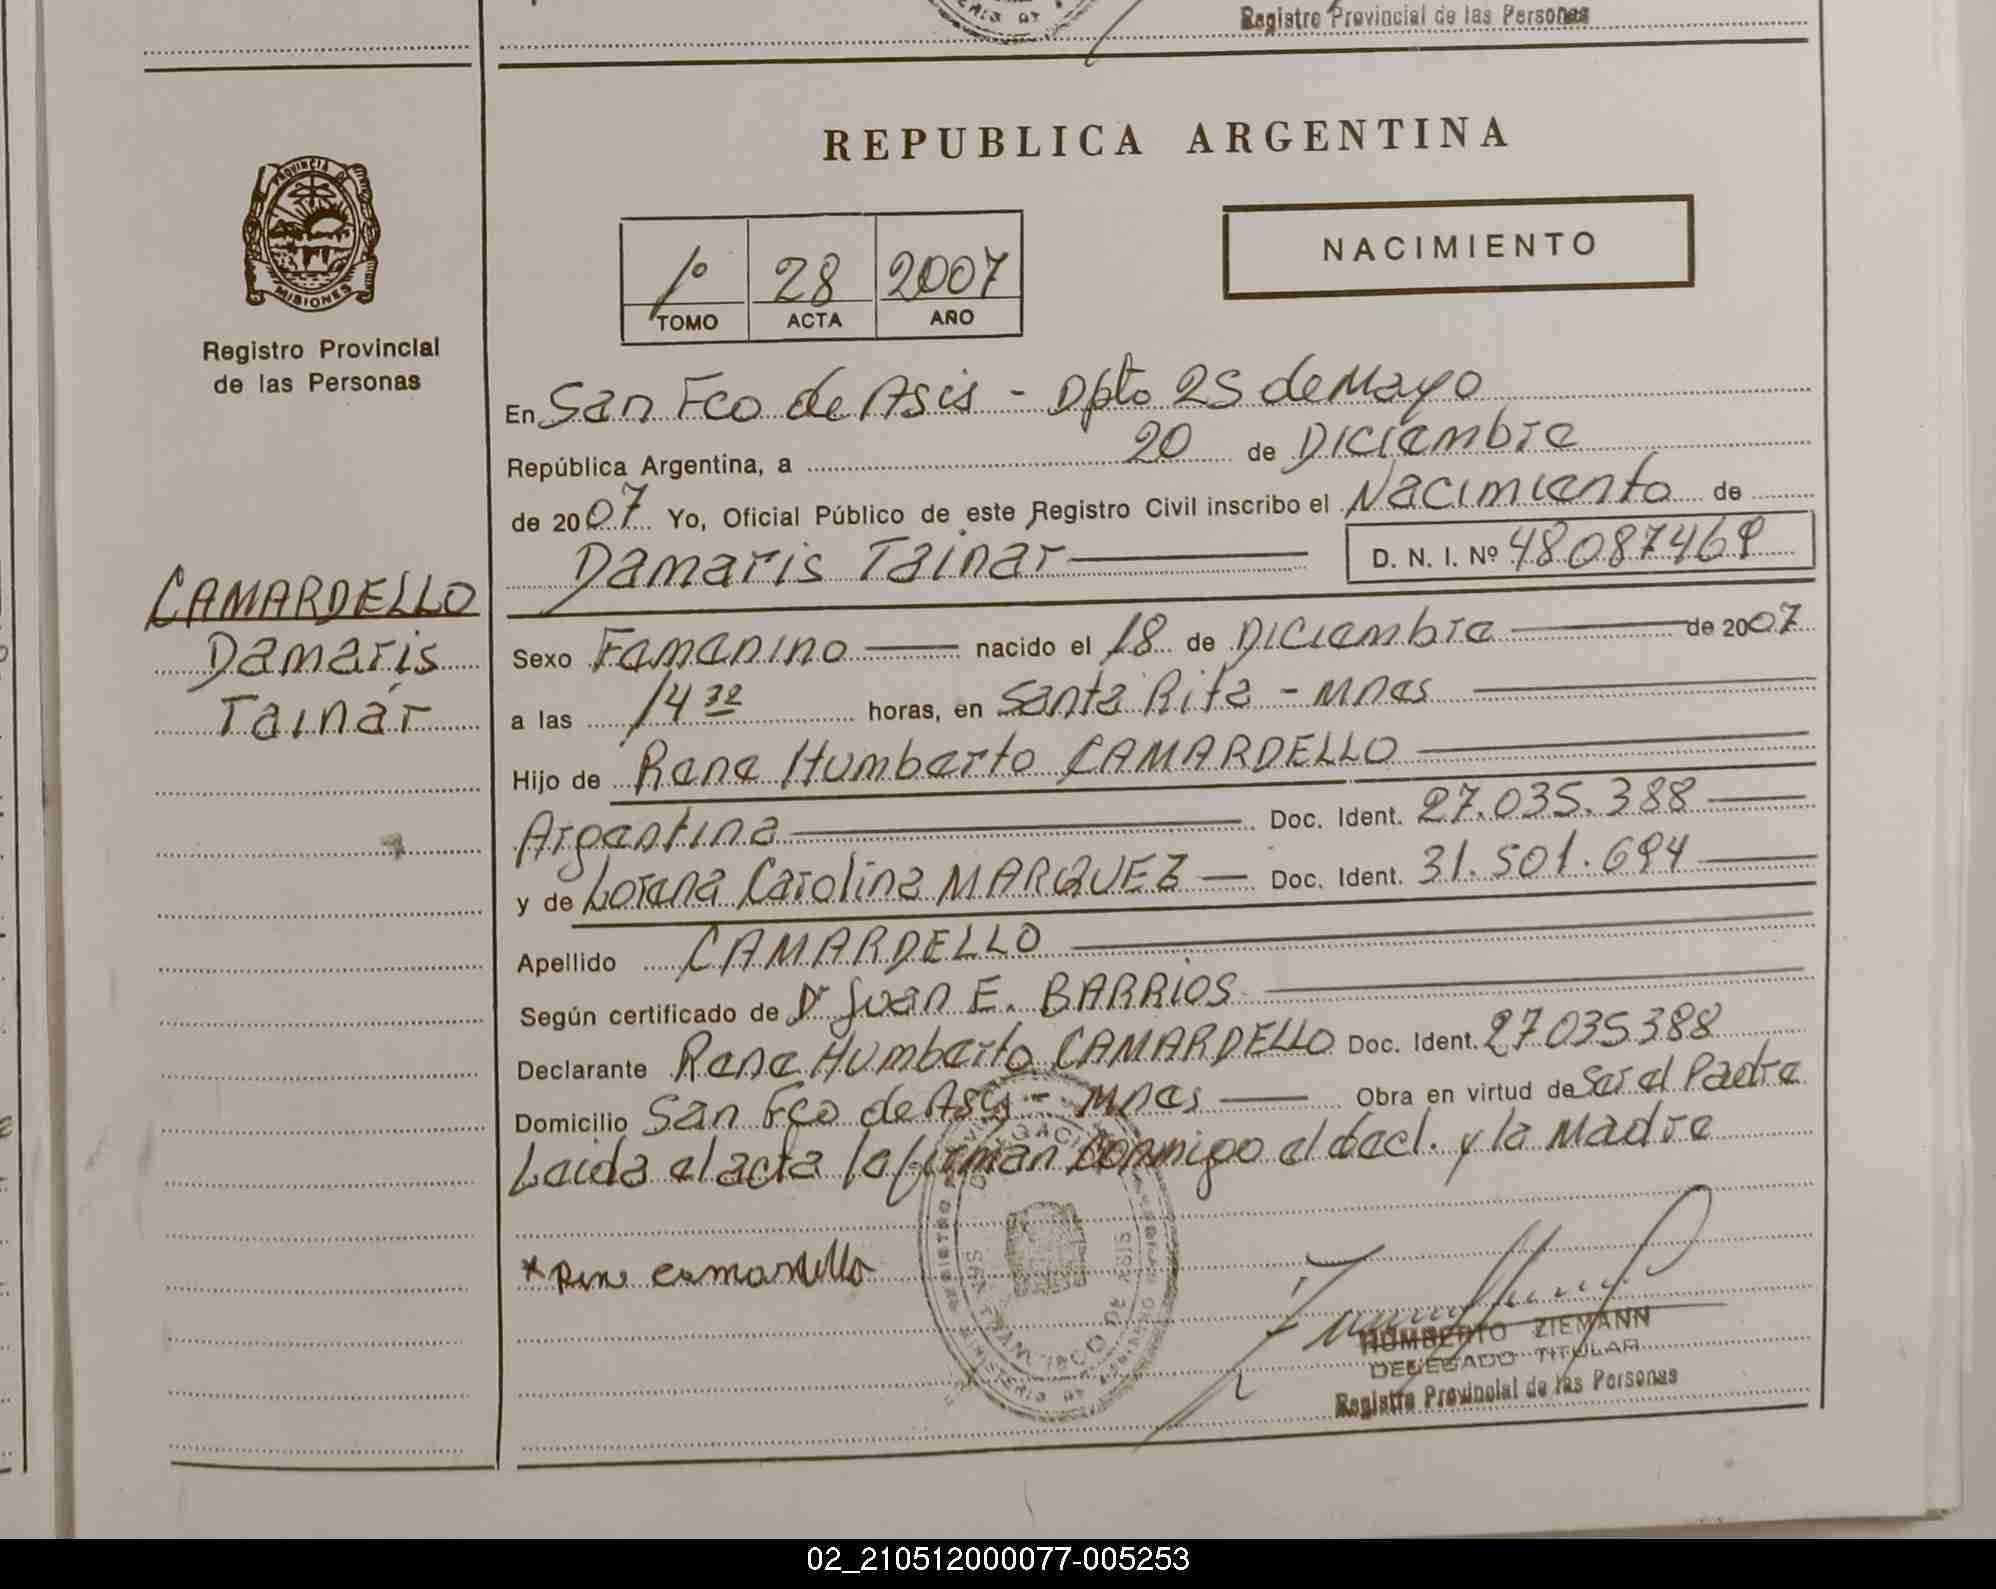 Registro Provincial de las Personas
PROVINCIA DE
MISIONES
Registro Provincial
de las Personas
CAMARDELLO
Damaris
Tainár
REPUBLICA ARGENTINA
1º 28 2007
TOMO ACTA AÑO
NACIMIENTO
En San Fco de Asis - Dpto 25 de Mayo
República Argentina, a 20 de Diciembre
de 2007 Yo, Oficial Público de este Registro Civil inscribo el Nacimiento de
Damaris Tainar
D. N. I. Nº 48087469
Sexo Femenino nacido el 18 de Diciembre de 2007
a las 14 32 horas, en Santa Rita - Mnes
Hijo de Rene Humberto CAMARDELLO
Argentina Doc. Ident. 27.035.388
y de Lorena Carolina MARQUEZ Doc. Ident. 31.501.694
Apellido CAMARDELLO
Según certificado de Dr Juan E. BARRIOS
Declarante Rene Humberto CAMARDELLO Doc. Ident. 27035388
Domicilio San Fco de Asis - Mnes Obra en virtud de Ser el Padre
Leida el acta la firman Conmigo el decl. y la Madre
* Rene camardello
SAN FRANCISCO DE ASIS
HUMBERTO ZIEMANN
DELEGADO TITULAR
Registro Provincial de las Personas
02_210512000077-005253